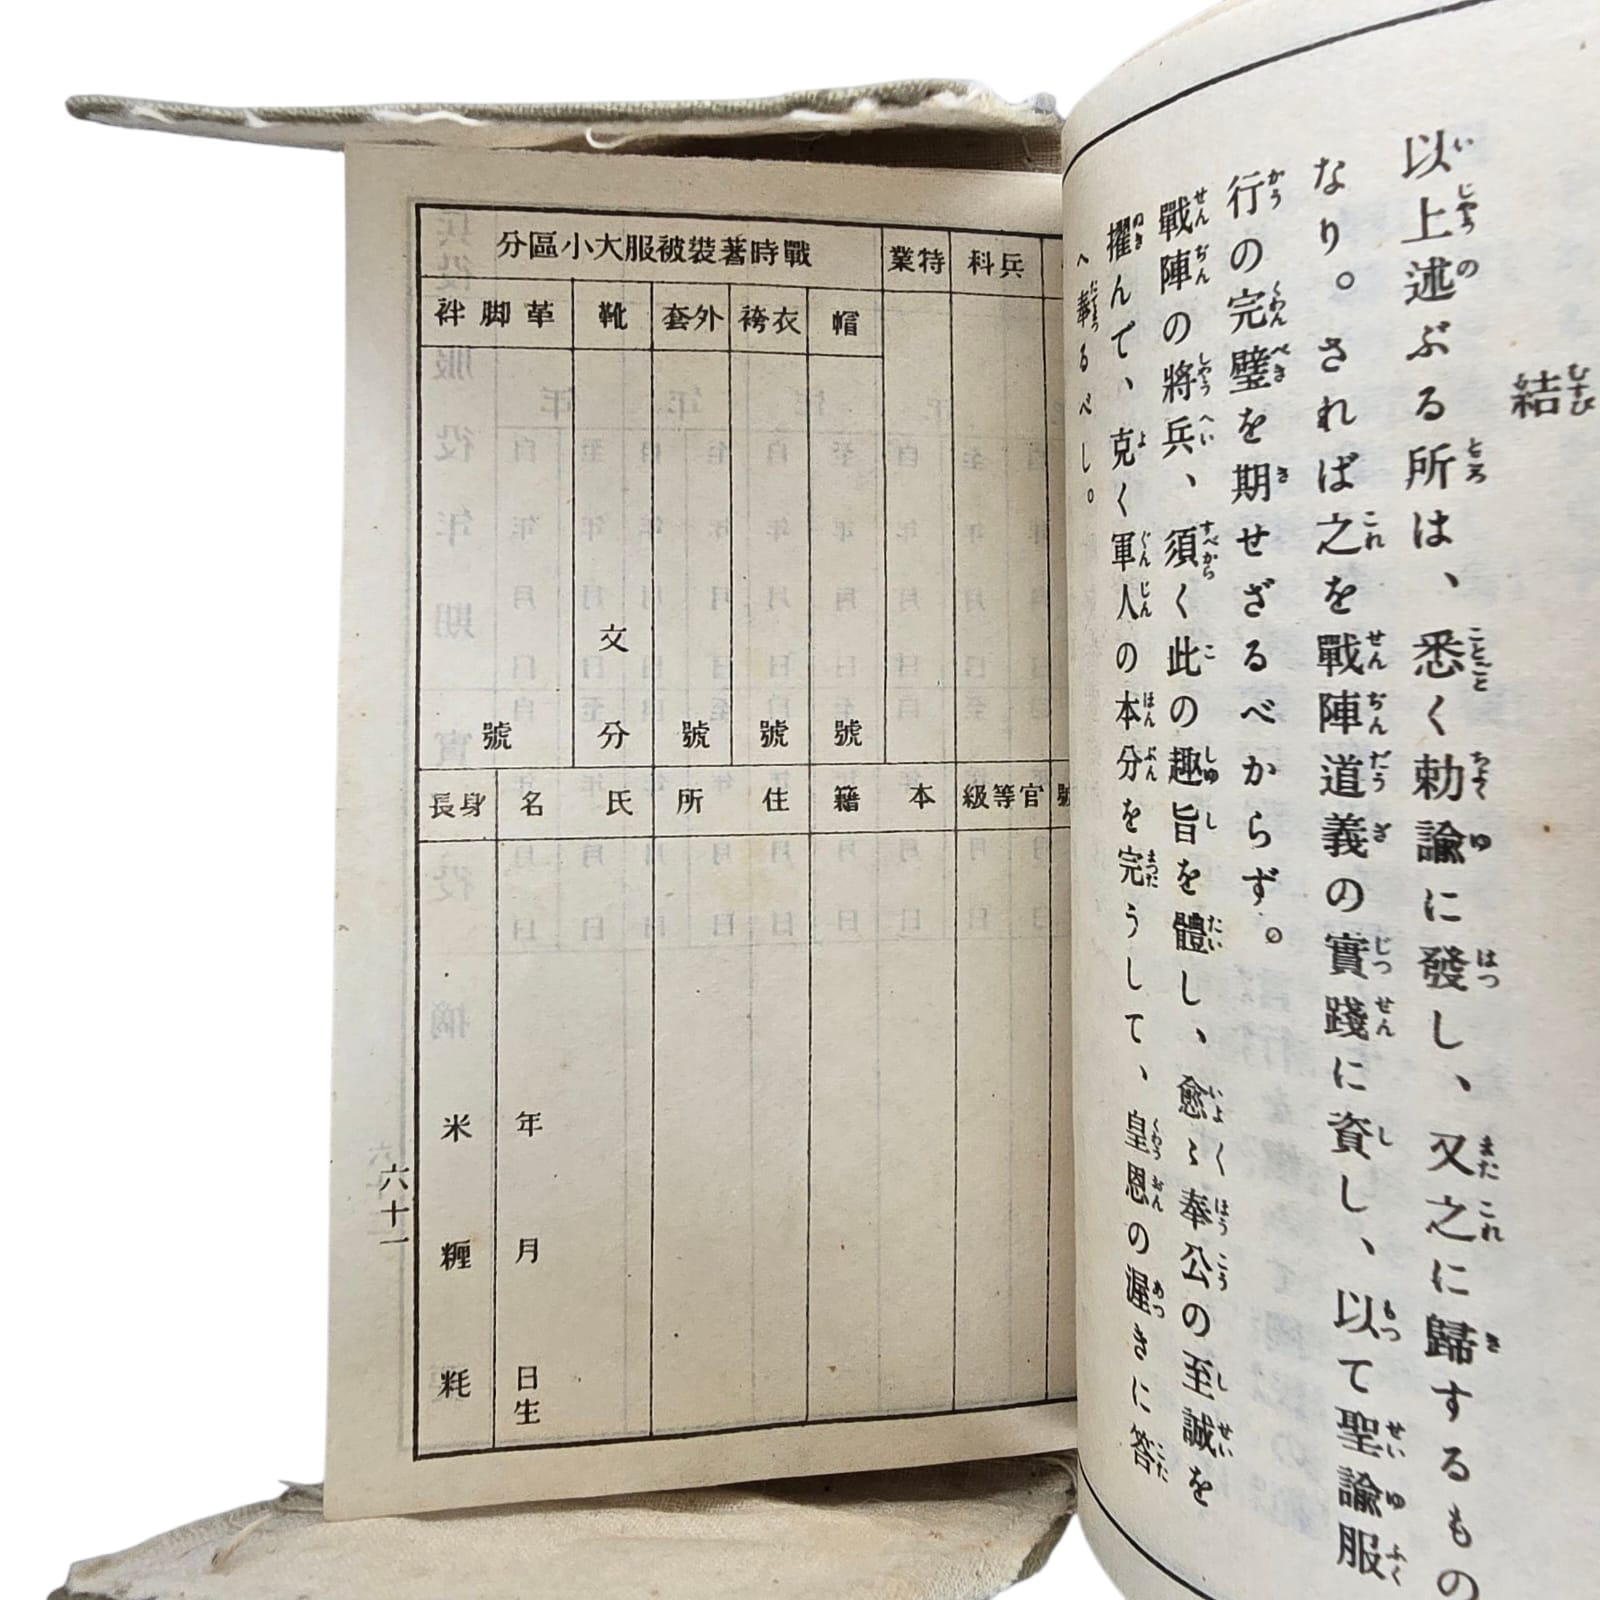 結
以上述ぶる所は、悉く勅諭に發し、又之に歸するもの
なり。されば之を戰陣道義の實踐に資し、以て聖諭服
行の完璧を期せざるべからず。
戰陣の將兵、須く此の趣旨を體し、愈〻奉公の至誠を
擢んで、克く軍人の本分を完うして、皇恩の渥きに答
へ奉るべし。
兵科
特業
戰時著裝被服大小區分
帽
號
衣袴
號
外套
號
靴
文
分
革脚絆
號
號
官等級
本籍
住所
氏名
年
月
日生
身長
米
糎
粍
六十一